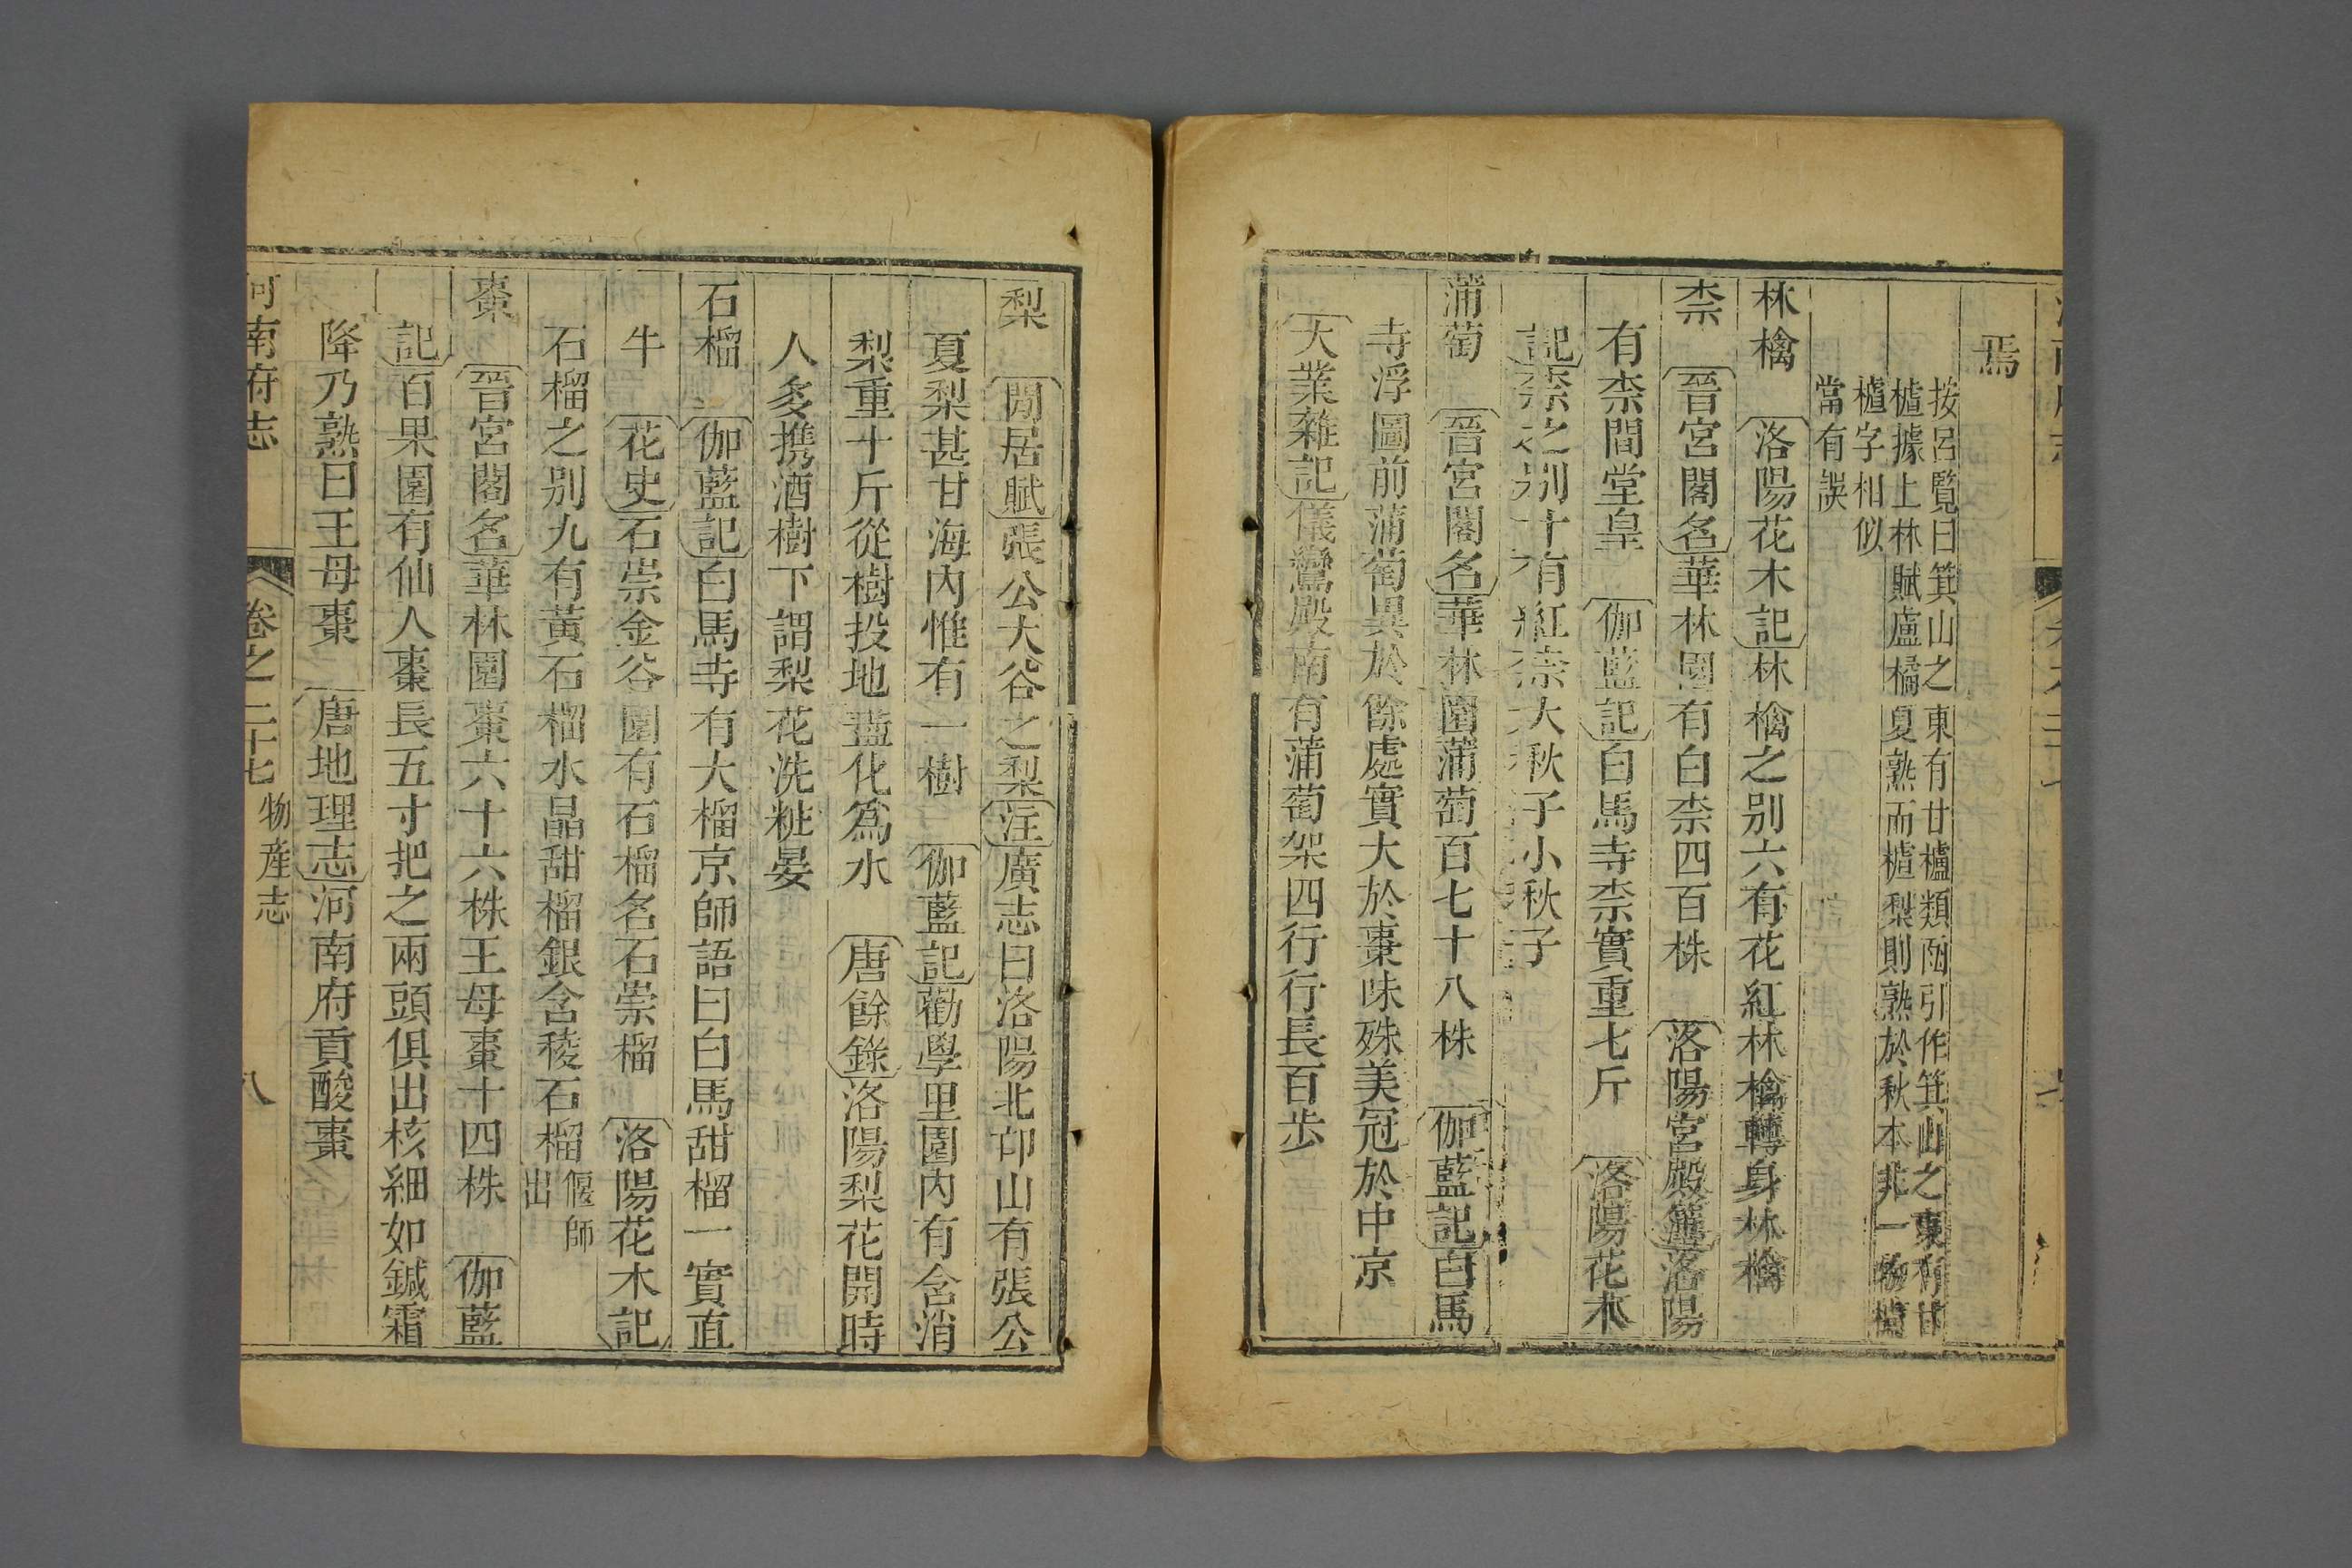 焉
按呂覽曰箕山之東有甘櫨類函引作箕山之東有甘
樝據上林賦盧橘夏熟而樝梨則熟於秋本非一物櫨
樝字相似
當有誤
林檎 洛陽花木記林檎之別六有花紅林檎轉身林檎
柰 晉宮閣名華林園有白柰四百株 洛陽宮殿簿洛陽
有柰間堂皇 伽藍記白馬寺柰實重七斤 洛陽花木
記柰之別十有紅柰大秋子小秋子
蒲萄 晉宮閣名華林園蒲萄百七十八株 伽藍記白馬
寺浮圖前蒲萄異於餘處實大於棗味殊美冠於中京
大業雜記儀鸞殿南有蒲萄架四行行長百步
梨 閒居賦張公大谷之梨注廣志曰洛陽北邙山有張公
夏梨甚甘海內惟有一樹 伽藍記勸學里園內有含消
梨重十斤從樹投地盡化爲水 唐餘錄洛陽梨花開時
人多携酒樹下謂梨花洗粧晏
石榴 伽藍記白馬寺有大榴京師語曰白馬甜榴一實直
牛 花史石崇金谷園有石榴名石崇榴 洛陽花木記
石榴之別九有黃石榴水晶甜榴銀含稜石榴偃師出
棗 晉宮閣名華林園棗六十六株王母棗十四株 伽藍
記百果園有仙人棗長五寸把之兩頭俱出核細如鍼霜
降乃熟曰王母棗 唐地理志河南府貢酸棗
河南府志 卷之二十七 物產志 八